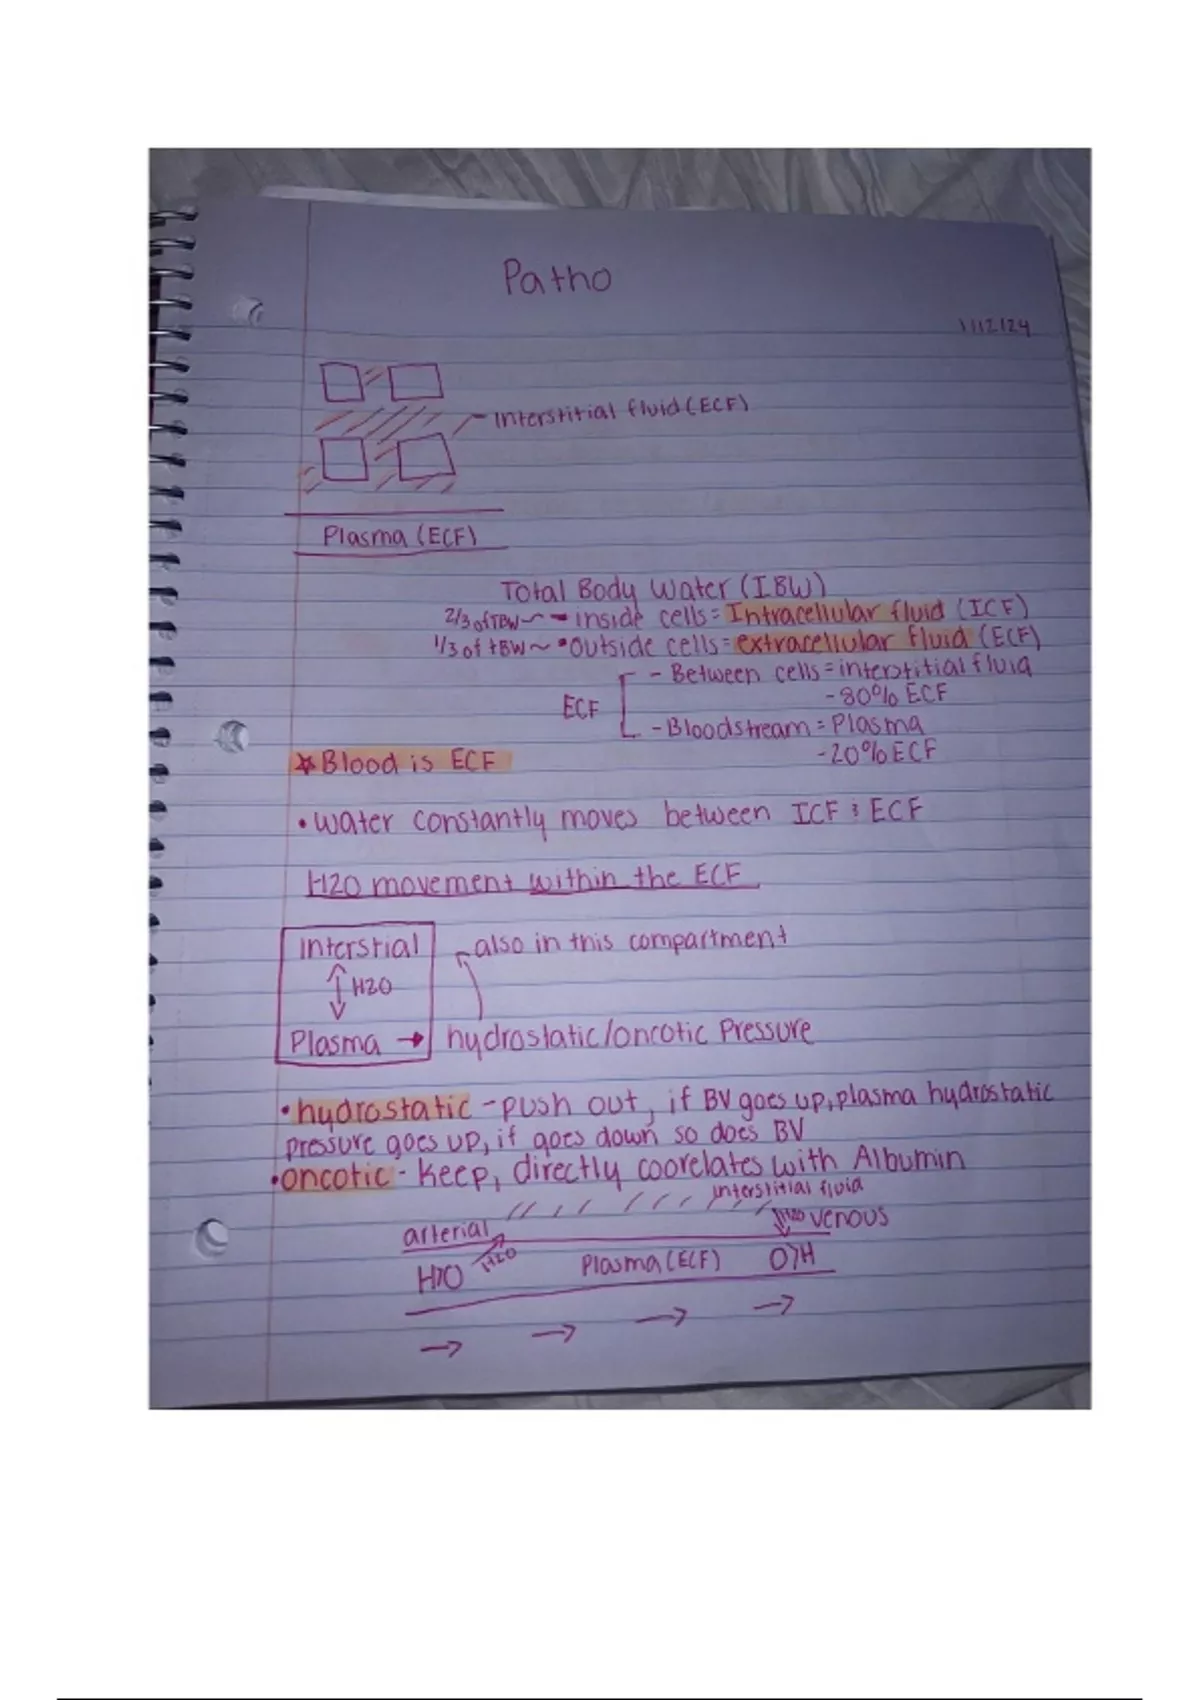 Patho
1/12/24
Interstitial fluid (ECF)
Plasma (ECF)
Total Body Water (IBW)
2/3 of TBW ~ - inside cells = Intracellular fluid (ICF)
1/3 of tBW ~ • Outside cells = extracellular fluid (ECF)
- Between cells = interstitial fluid
- 80% ECF
ECF
- Bloodstream = Plasma
- 20% ECF
☆ Blood is ECF
• Water constantly moves between ICF & ECF
H2O movement within the ECF
Interstial
also in this compartment
H2O
Plasma → hydrostatic/oncotic Pressure
• hydrostatic - push out, if BV goes up, plasma hydrostatic
pressure goes up, if goes down so does BV
• oncotic - keep, directly coorelates with Albumin
interstitial fluid
arterial
H2O venous
H>O
H2O
Plasma (ECF)
O>H